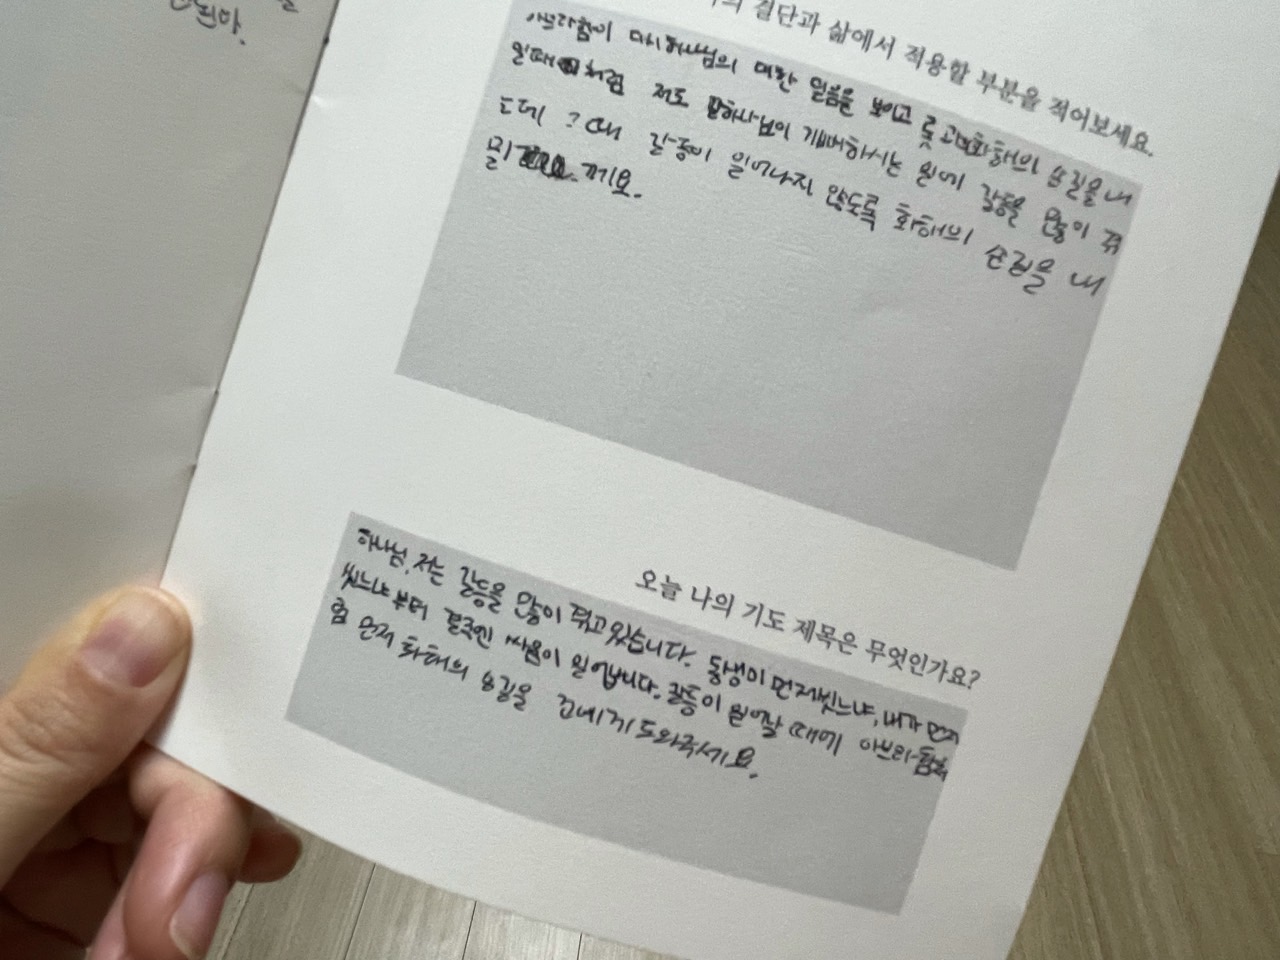 된다.
의 결단과 삶에서 적용할 부분을 적어보세요.
아브라함이 다시 하나님의 대한 믿음을 보이고 롯고 화해의 손길을 내
밀때 처럼 저도 하나님이 기뻐하시는 일에 갈등을 많이 겪
는데 그때 갈등이 일어나지 않도록 화해의 손길을 내
밀 께요.
오늘 나의 기도 제목은 무엇인가요?
하나님, 저는 갈등을 많이 겪고 있습니다. 동생이 먼저씻느냐, 내가 먼저
씻느냐 부터 결국엔 싸움이 일어납니다. 갈등이 일어날 때에 아브라함처
럼 먼저 화해의 손길을 건네게 도와주세요.